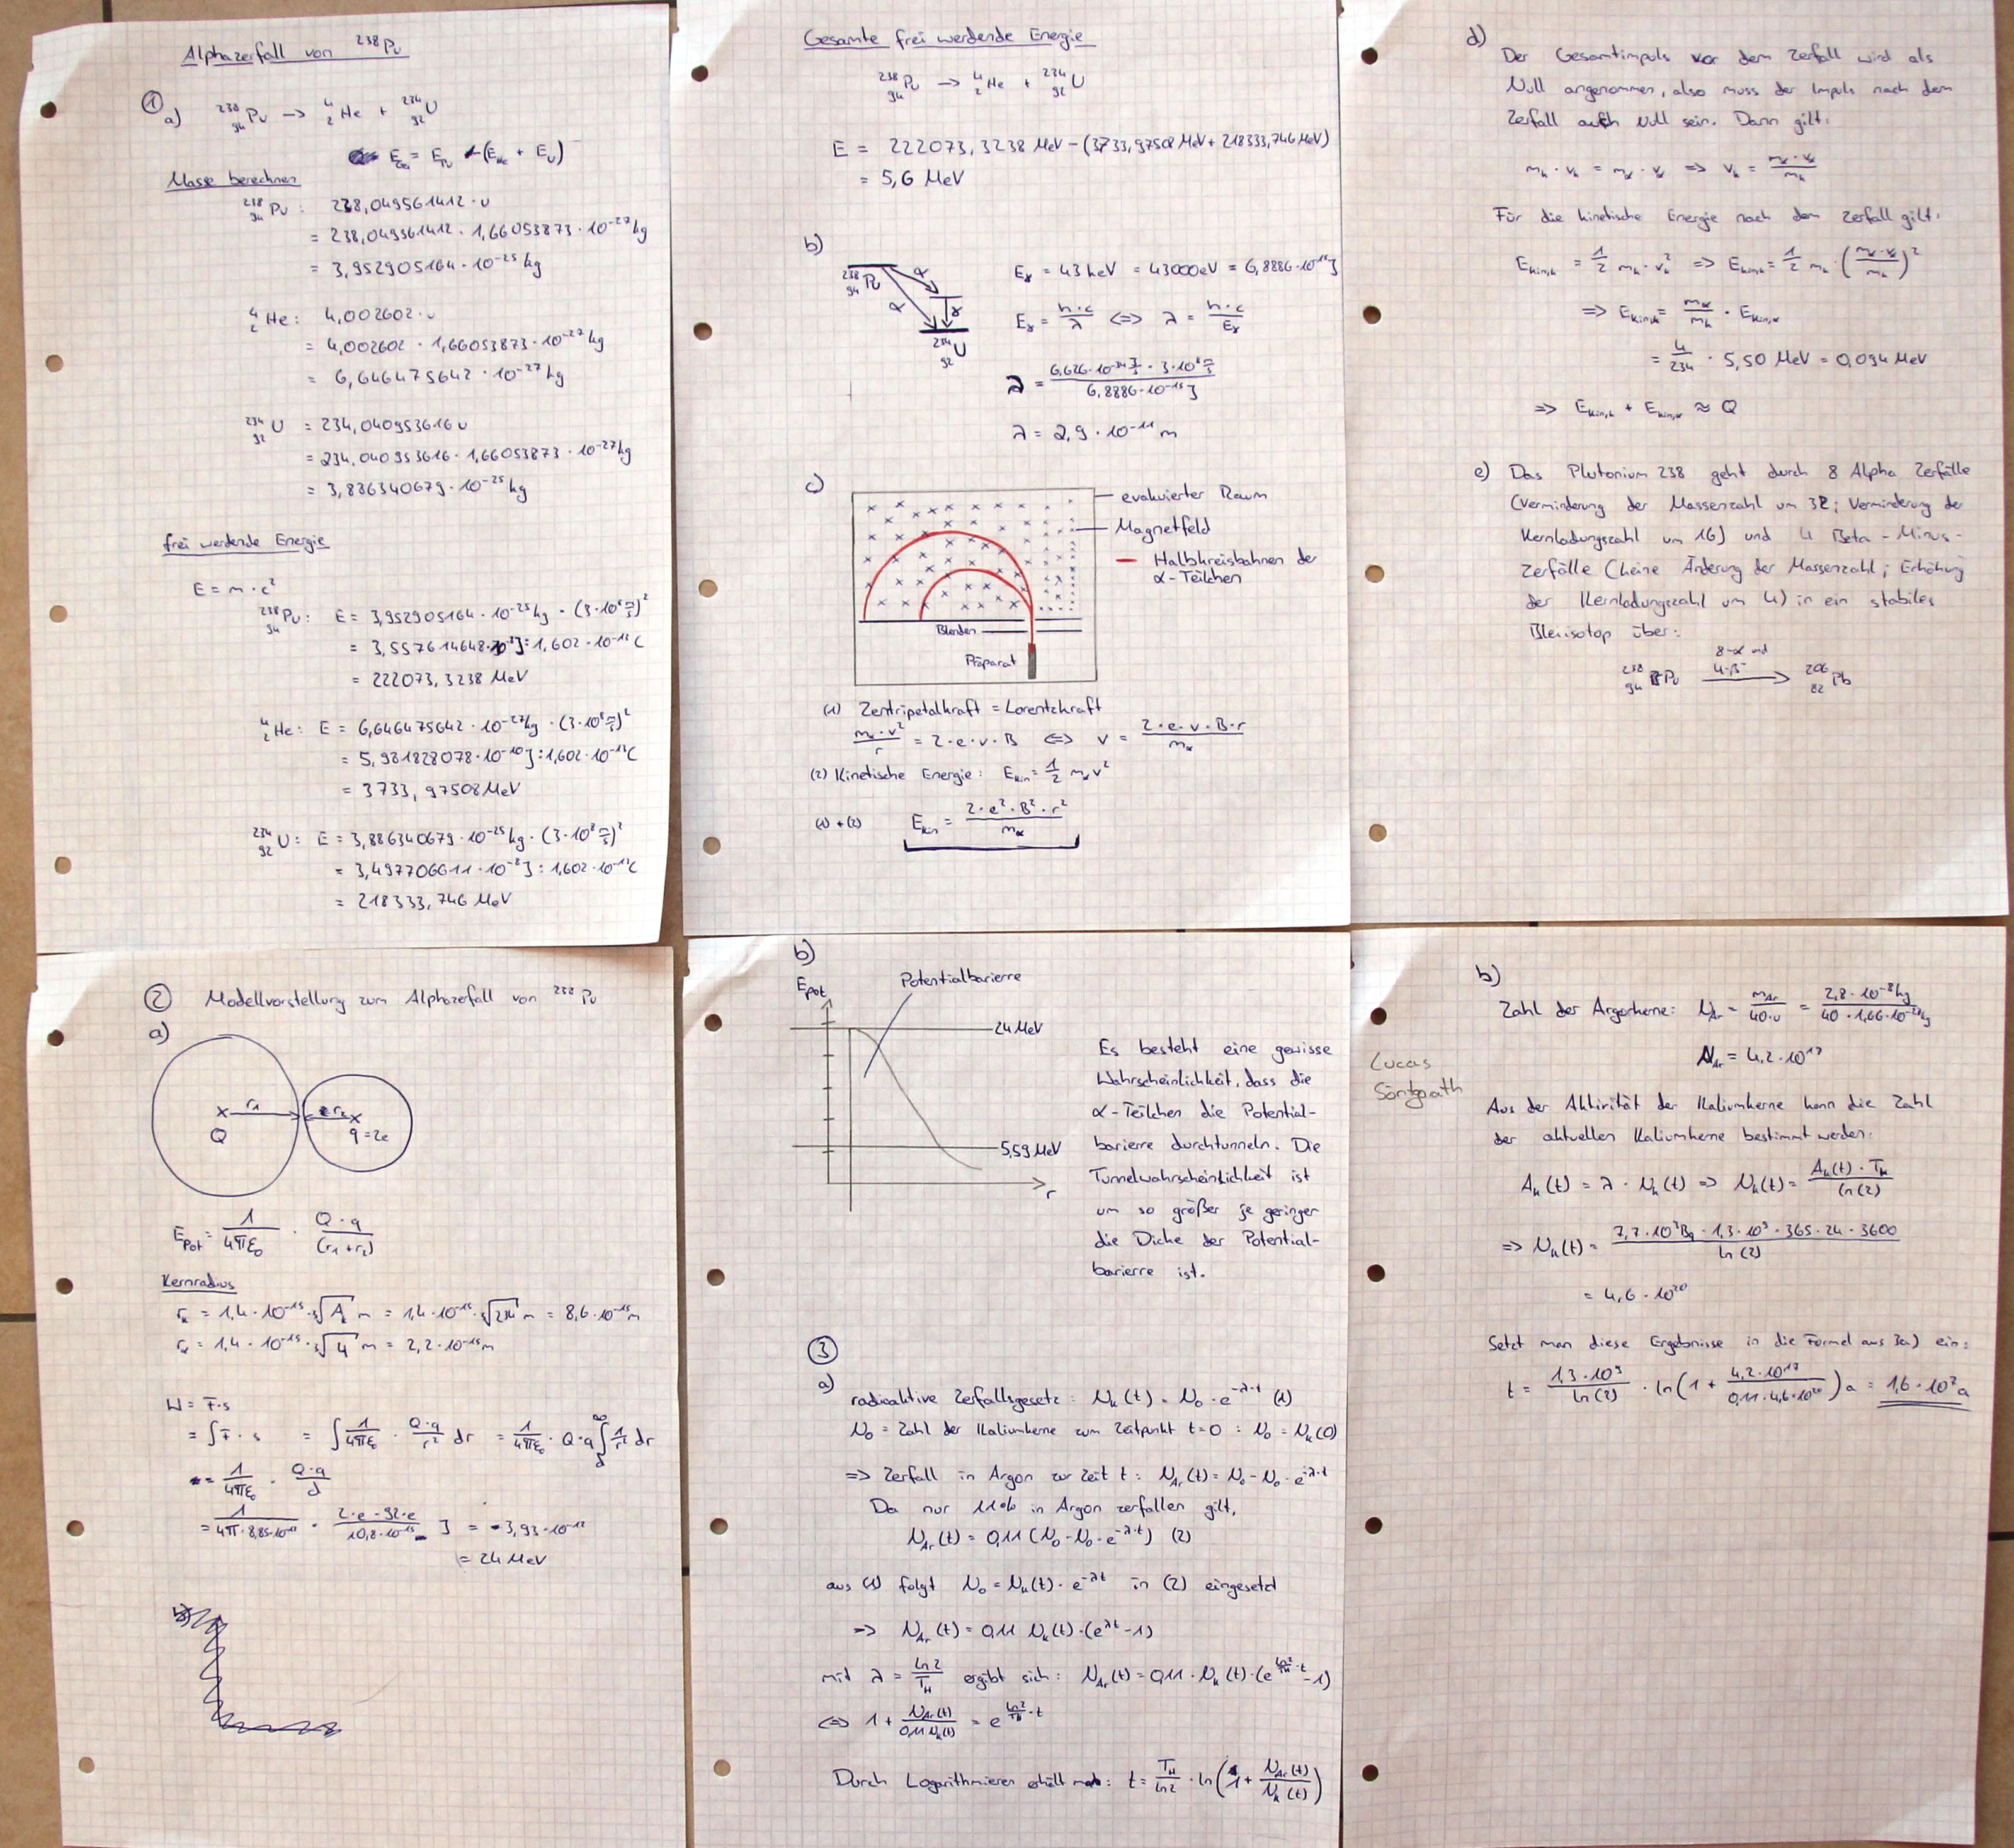 Alphazerfall von ²³⁸Pu
① a) ²³⁸₉₄Pu → ⁴₂He + ²³⁴₉₂U
E_Ges = E_Pu - (E_He + E_U)
Masse berechnen
²³⁸₉₄Pu: 238,049561412 · u
= 238,049561412 · 1,66053873 · 10⁻²⁷ kg
= 3,952905164 · 10⁻²⁵ kg
⁴₂He: 4,002602 · u
= 4,002602 · 1,66053873 · 10⁻²⁷ kg
= 6,646475642 · 10⁻²⁷ kg
²³⁴₉₂U = 234,040953616 u
= 234,040953616 · 1,66053873 · 10⁻²⁷ kg
= 3,886340679 · 10⁻²⁵ kg
frei werdende Energie
E = m · c²
²³⁸₉₄Pu: E = 3,952905164 · 10⁻²⁵ kg · (3 · 10⁸ m/s)²
= 3,557614648 · 10⁻⁸ J : 1,602 · 10⁻¹³ C
= 222073,3238 MeV
⁴₂He: E = 6,646475642 · 10⁻²⁷ kg · (3 · 10⁸ m/s)²
= 5,981828078 · 10⁻¹⁰ J : 1,602 · 10⁻¹³ C
= 3733,97508 MeV
²³⁴₉₂U: E = 3,886340679 · 10⁻²⁵ kg · (3 · 10⁸ m/s)²
= 3,497706611 · 10⁻⁸ J : 1,602 · 10⁻¹³ C
= 218333,746 MeV
Gesamte frei werdende Energie
²³⁸₉₄Pu → ⁴₂He + ²³⁴₉₂U
E = 222073,3238 MeV - (3733,97508 MeV + 218333,746 MeV)
= 5,6 MeV
b)
²³⁸₉₄Pu α
α γ
²³⁴₉₂U
E_γ = 43 keV = 43000 eV = 6,8886 · 10⁻¹⁵ J
E_γ = h·c/λ <=> λ = h·c/E_γ
λ = (6,626 · 10⁻³⁴ J/s · 3 · 10⁸ m/s)/(6,8886 · 10⁻¹⁵ J)
λ = 2,9 · 10⁻¹¹ m
c)
evakuierter Raum
Magnetfeld
Halbkreisbahnen der
α-Teilchen
Blenden
Präparat
(1) Zentripetalkraft = Lorentzkraft
m_α · v²/r = 2 · e · v · B <=> v = 2 · e · v · B · r/m_α
(2) Kinetische Energie: E_kin = 1/2 m_α v²
(1) + (2) E_kin = 2 · e² · B² · r²/m_α
d)
Der Gesamtimpuls vor dem Zerfall wird als
Null angenommen, also muss der Impuls nach dem
Zerfall auch Null sein. Dann gilt:
m_k · v_k = m_α · v_α => v_k = m_α · v_α/m_k
Für die kinetische Energie nach dem Zerfall gilt:
E_kin,k = 1/2 m_k · v_k² => E_kin,k = 1/2 m_k · (m_α · v_α/m_k)²
=> E_kin,k = m_α/m_k · E_kin,α
= 4/234 · 5,50 MeV = 0,094 MeV
=> E_kin,k + E_kin,α ≈ Q
e) Das Plutonium 238 geht durch 8 Alpha Zerfälle
(Verminderung der Massenzahl um 32; Verminderung der
Kernladungszahl um 16) und 4 Beta-Minus-
Zerfälle (keine Änderung der Massenzahl; Erhöhung
der Kernladungszahl um 4) in ein stabiles
Bleiisotop über:
²³⁸₉₄Pu 8-α und 4-β⁻ → ²⁰⁶₈₂Pb
② Modellvorstellung zum Alphazerfall von ²³⁸Pu
a)
r₁ r₂
Q q = 2e
E_pot = 1/4πε₀ · Q · q/(r₁ + r₂)
Kernradius
r_k = 1,4 · 10⁻¹⁵ · ³√A_k m = 1,4 · 10⁻¹⁵ · ³√234 m = 8,6 · 10⁻¹⁵ m
r_α = 1,4 · 10⁻¹⁵ · ³√4 m = 2,2 · 10⁻¹⁵ m
W = F · s
= ∫F · s = ∫ 1/4πε₀ · Q·q/r² dr = 1/4πε₀ · Q · q ∫_d^∞ 1/r² dr
= 1/4πε₀ · Q · q/d
= 1/(4π · 8,85 · 10⁻¹²) · (2 · e · 92 · e)/(10,8 · 10⁻¹⁵) J = 3,93 · 10⁻¹²
= 24 MeV
b)
Potentialbarierre
E_pot
24 MeV
5,59 MeV
r
Es besteht eine gewisse
Wahrscheinlichkeit, dass die
α-Teilchen die Potential-
barierre durchtunneln. Die
Tunnelwahrscheinlichkeit ist
um so größer je geringer
die Dicke der Potential-
barierre ist.
③
a)
radioaktive Zerfallsgesetz: N_k(t) = N₀ · e^(-λ·t) (1)
N₀ = Zahl der Kaliumkerne zum Zeitpunkt t=0 : N₀ = N_k(0)
=> Zerfall in Argon zur Zeit t: N_Ar(t) = N₀ - N₀ · e^(-λ·t)
Da nur 11% in Argon zerfallen gilt,
N_Ar(t) = 0,11 (N₀ - N₀ · e^(-λ·t)) (2)
aus (1) folgt N₀ = N_k(t) · e^(-λt) in (2) eingesetzt
=> N_Ar(t) = 0,11 N_k(t) · (e^(λt) - 1)
mit λ = ln2/T_H ergibt sich: N_Ar(t) = 0,11 · N_k(t) · (e^(ln2/T_H · t) - 1)
<=> 1 + N_Ar(t)/(0,11 N_k(t)) = e^(ln2/T_H · t)
Durch Logarithmieren erhält man: t = T_H/ln2 · ln(1 + N_Ar(t)/N_k(t))
b)
Zahl der Argonkerne: N_Ar = m_Ar/(40·u) = (2,8 · 10⁻⁸ kg)/(40 · 1,66 · 10⁻²⁷ kg)
N_Ar = 4,2 · 10¹⁷
Lucas
Söntgerath
Aus der Aktivität der Kaliumkerne kann die Zahl
der aktuellen Kaliumkerne bestimmt werden:
A_k(t) = λ · N_k(t) => N_k(t) = A_k(t) · T_H/ln(2)
=> N_k(t) = (7,7 · 10³ Bq · 1,3 · 10⁹ · 365 · 24 · 3600)/ln(2)
= 4,6 · 10²⁰
Setzt man diese Ergebnisse in die Formel aus 3a) ein:
t = 1,3 · 10⁹/ln(2) · ln(1 + 4,2 · 10¹⁷/(0,11 · 4,6 · 10²⁰)) a = 1,6 · 10⁷ a